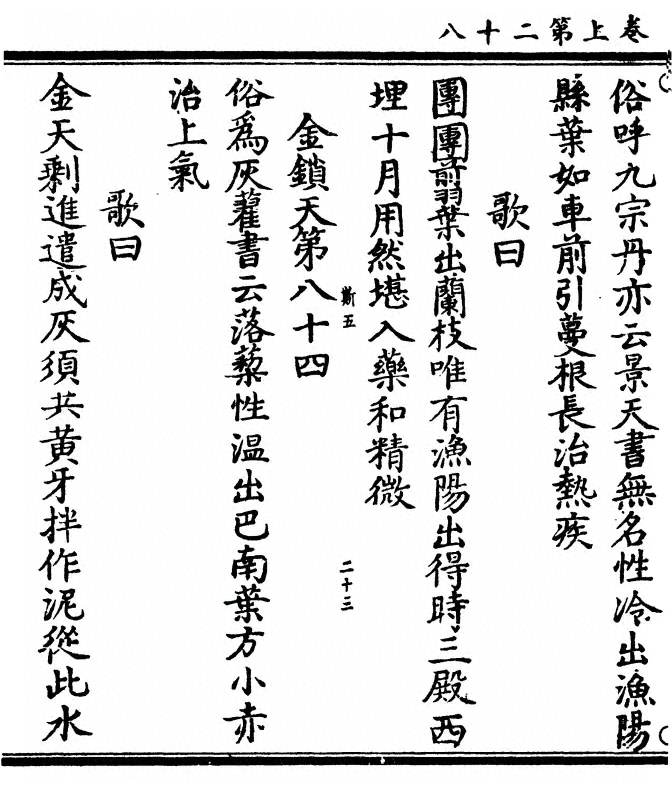 卷上第二十八
俗呼九宗丹亦云景天書無名性冷出漁陽
縣葉如車前引蔓根長治熱疾
歌曰
團團翦翠葉出蘭枝唯有漁陽出得時三殿西
埋十月用然堪入藥和精微
斯五
二十三
金鎖天第八十四
俗為灰藋書云落藜性溫出巴南葉方小赤
治上氣
歌曰
金天剩進遣成灰須共黃牙拌作泥從此水